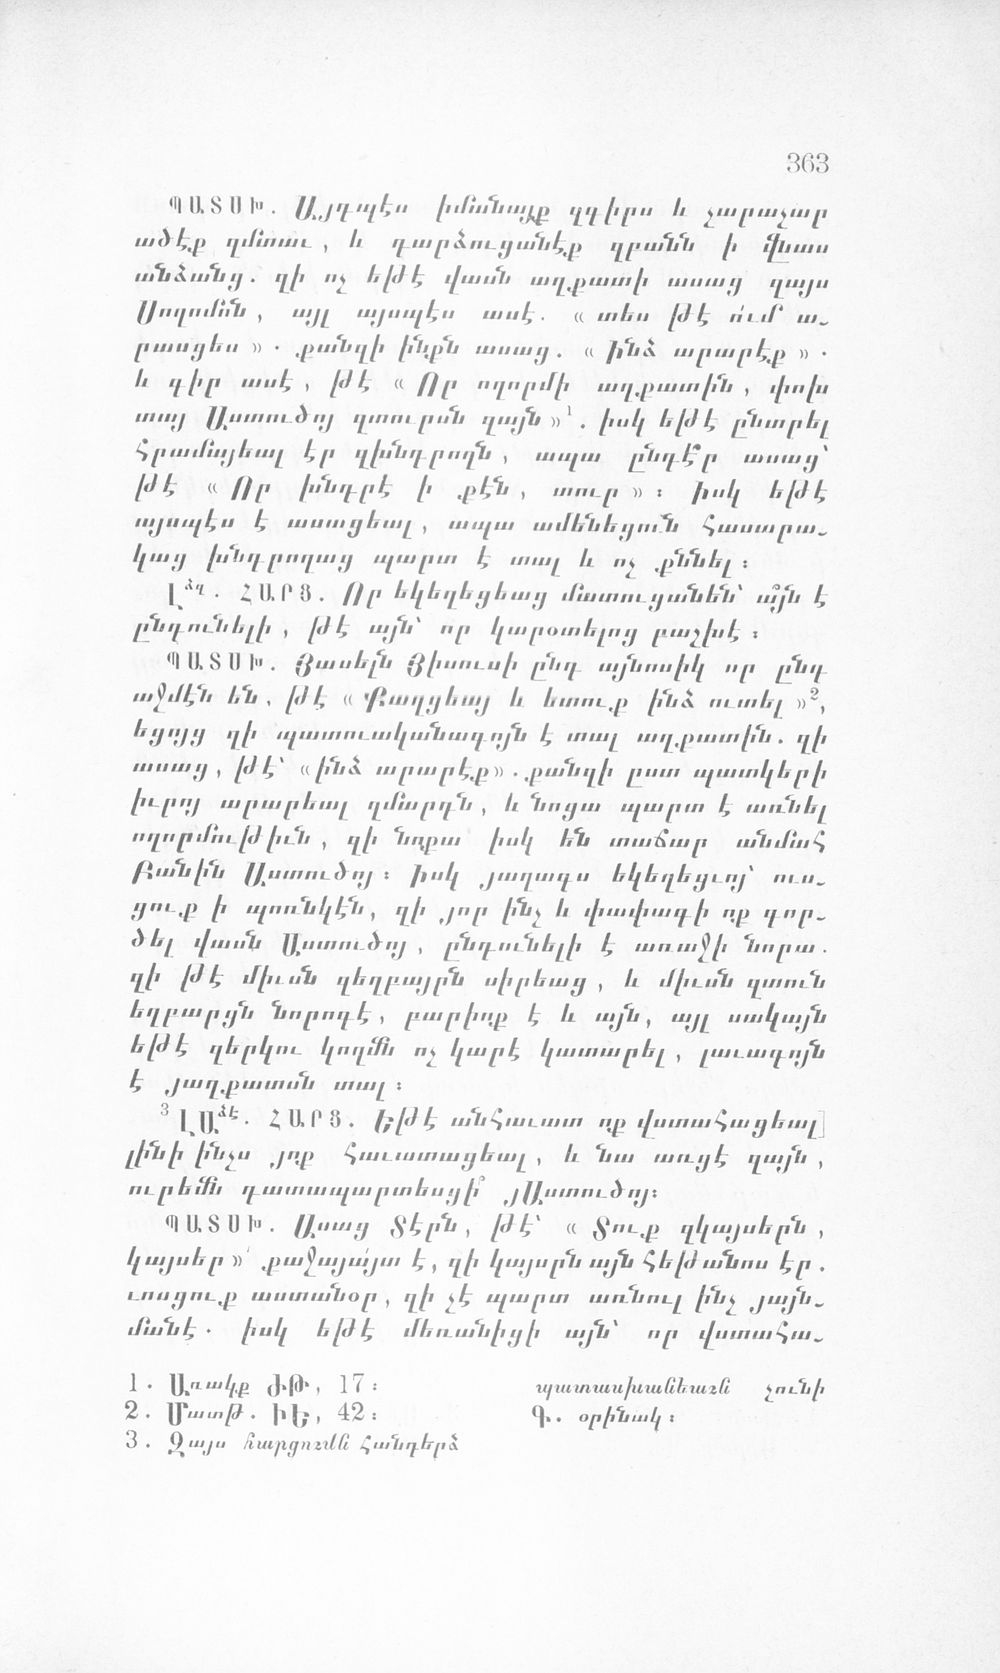 363
ՊԱՏՍԽ. Այդպէս իմանայք զգիրս և չարաչար
ածէք զմտաւ, և դարձուցանէք զբանն ի վնաս
անձանց. զի ոչ եթէ վասն աղքատի ասաց զայս
Սողոմոն, այլ այսպէս ասէ. « տես թէ ո՛ւմ ա֊
րասցես » . քանզի ինքն ասաց. « ինձ արարէք » .
և գիր ասէ, թէ « Որ ողորմի աղքատին, փոխ
տայ Աստուծոյ զտուրսն զայն »¹. իսկ եթէ ընտրել
հրամայեալ էր զխնդրողն, ապա ընդէ՞ր ասաց՝
թէ « Որ խնդրէ ի քէն, տուր » ։ իսկ եթէ
այսպէս է ասացեալ, ապա ամենեցուն հասարա֊
կաց խնդրողաց պարտ է տալ և ոչ քննել ։
Լձդ. ՀԱՐՑ. Որ եկեղեցեաց մատուցանեն՝ ա՞յն է
ընդունելի, թէ այն՝ որ կարօտելոց բաշխէ ։
ՊԱՏՍԽ. Յասելն Յիսուսի ընդ այնոսիկ որ ընդ
աջմէն են, թէ « Քաղցեայ և ետուք ինձ ուտել »²,
եցոյց զի պատուականագոյն է տալ աղքատին. զի
ասաց, թէ՝ « ինձ արարէք» . քանզի ըստ պատկերի
իւրոյ արարեալ զմարդն, և նոցա պարտ է առնել
ողորմութիւն, զի նոքա իսկ են տաճար անմահ
Բանին Աստուծոյ ։ իսկ յաղագս եկեղեցւոյ՝ ուս֊
ցուք ի պոռնկէն, զի յոր ինչ և փափագի ոք գոր֊
ծել վասն Աստուծոյ, ընդունելի է առաջի նորա.
զի թէ միւսն զեղբայրն սիրեաց, և միւսն զտուն
եղբարցն նորոգէ, բարիոք է և այն, այլ սակայն
եթէ զերկու կողմն ոչ կարէ կատարել, լաւագոյն
է յաղքատսն տալ ։
³ ԼԱձէ. ՀԱՐՑ. Եթէ անհաւատ ոք վստահացեալ]
լինի ինչս յոք հաւատացեալ, և նա առցէ զայն,
ուրեմն դատապարտեսցի՞ յԱստուծոյ։
ՊԱՏՍԽ. Ասաց Տէրն, թէ՝ « Տուք զկայսերն,
կայսեր » քաջայայտ է, զի կայսրն այն հեթանոս էր.
ւոսցուք աստանօր, զի չէ պարտ առնուլ ինչ յայն֊
մանէ. իսկ եթէ մեռանիցի այն՝ որ վստահա֊
1. Առակք ԺԹ, 17 ։
2. Մատթ. ԻԵ, 42 ։
3. Զայս հարցումն հանդերձ
պատասխանեաւն չունի
Գ. օրինակ ։